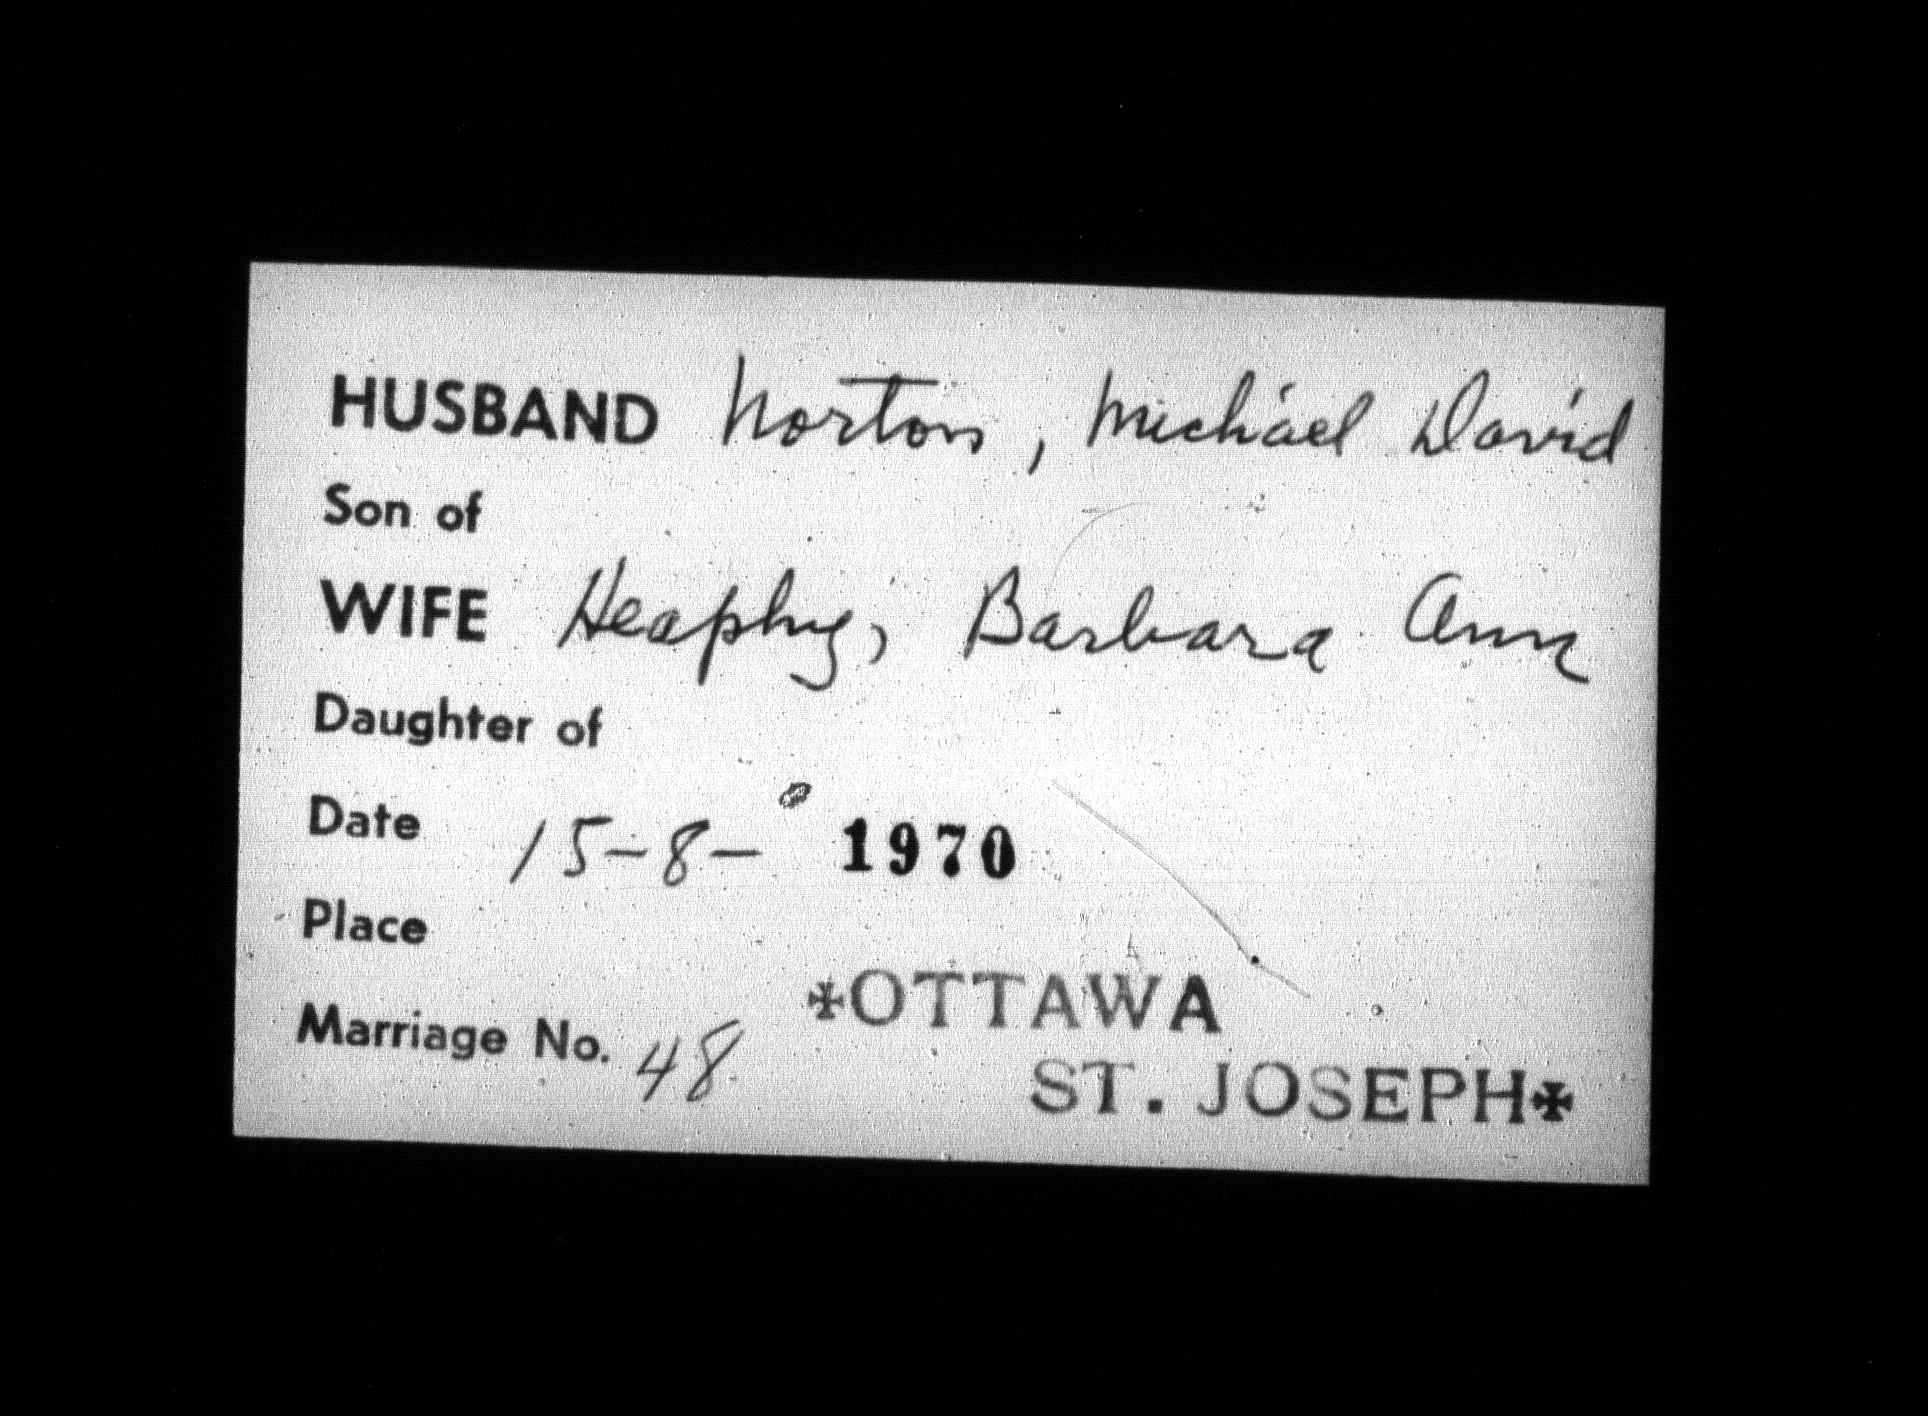 HUSBAND Norton, Michael David
Son of
WIFE Heaphy, Barbara Ann
Daughter of
Date 15-8- 1970
Place
✠OTTAWA
Marriage No. 48
ST. JOSEPH✠